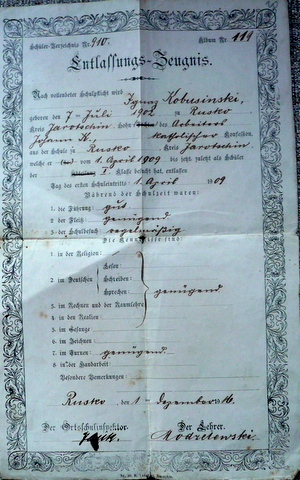 Schüler-Verzeichnis Nr. 910. Album Nr. 111
Entlassungs-Zeugnis.
Nach vollendeter Schulpflicht wird Ignaz Kobusinski,
geboren den 7 = Juli 1902 zu Rusko
Kreis Jarotschin Sohn des Arbeiters
Johann K. katholischer Konfession,
aus der Schule zu Rusko, Kreis Jarotschin
welche er vom 1. April 1909 bis jetzt zuletzt als Schüler
der I. Klasse besucht hat, entlassen
Tag des ersten Schuleintritts: 1. April 09
Während der Schulzeit waren:
1. die Führung: gut
2. der Fleiß: genügend
3. der Schulbesuch regelmäßig
Die Kenntnisse sind
1. in der Religion:
2. im Deutschen Lesen:
Schreiben:
Sprechen: genügend
3. im Rechnen und der Raumlehre
4. in den Realien
5. im Gesange
6. im Zeichnen
7. im Turnen: genügend.
8. in der Handarbeit:
Besondere Bemerkungen:
Rusko, den 1 = Dezember 16.
Der Ortsschulinspektor. Der Lehrer.
Modrelewski